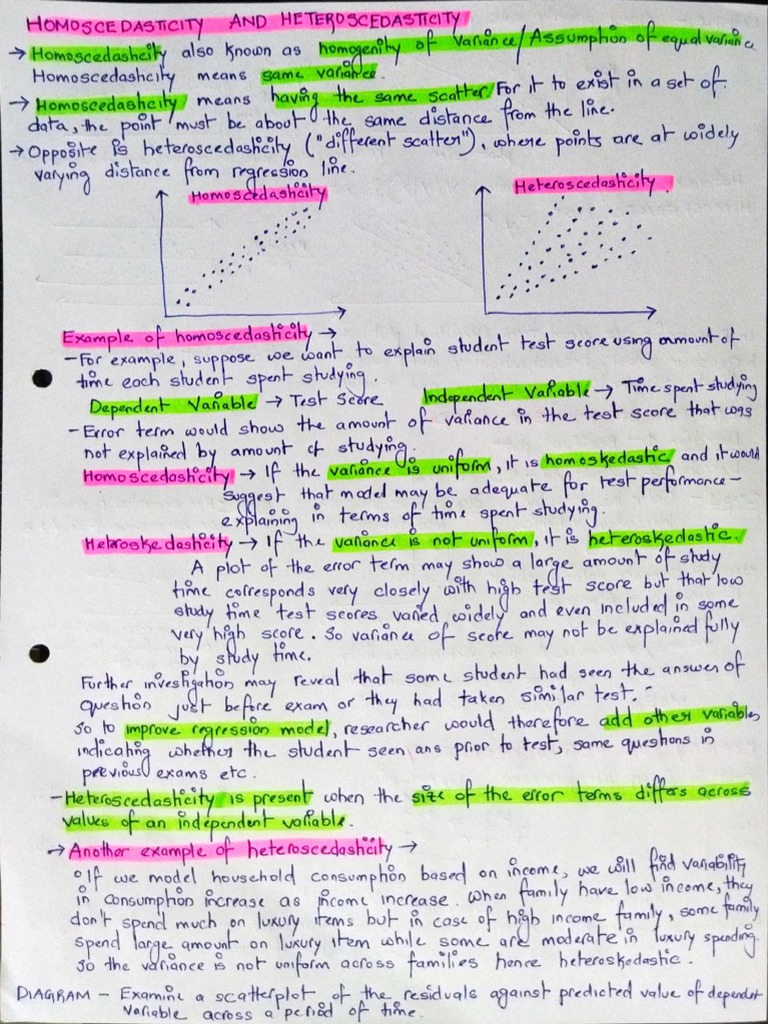 HOMOSCEDASTICITY AND HETEROSCEDASTICITY
→ Homoscedasticity also known as homogenity of variance/Assumption of equal variance.
Homoscedasticity means same variance.
→ Homoscedasticity means having the same scatter. For it to exist in a set of
data, the point must be about the same distance from the line.
→ Opposite is heteroscedasticity ("different scatter"), where points are at widely
varying distance from regression line.
Homoscedasticity
Heteroscedasticity
Example of homoscedasticity →
- For example, suppose we want to explain student test score using amount of
time each student spent studying.
Dependent Variable → Test Score Independent Variable → Time spent studying
- Error term would show the amount of variance in the test score that was
not explained by amount of studying.
Homoscedasticity → If the variance is uniform, it is homoskedastic and it would
suggest that model may be adequate for test performance -
explaining in terms of time spent studying.
Hetroskedasticity → If the variance is not uniform, it is heteroskedastic.
A plot of the error term may show a large amount of study
time corresponds very closely with high test score but that low
study time test scores varied widely and even included in some
very high score. So variance of score may not be explained fully
by study time.
Further investigation may reveal that some student had seen the answer of
question just before exam or they had taken similar test. -
So to improve regression model, researcher would therefore add other variables
indicating whether the student seen ans prior to test, same questions in
previous exams etc.
- Heteroscedasticity is present when the size of the error terms differs across
values of an independent variable.
→ Another example of heteroscedasticity →
• If we model household consumption based on income, we will find variability
in consumption increase as income increase. When family have low income, they
don't spend much on luxury items but in case of high income family, some family
spend large amount on luxury item while some are moderate in luxury spending.
So the variance is not uniform across families hence heteroskedastic.
DIAGRAM - Examine a scatterplot of the residuals against predicted value of dependent
variable across a period of time.